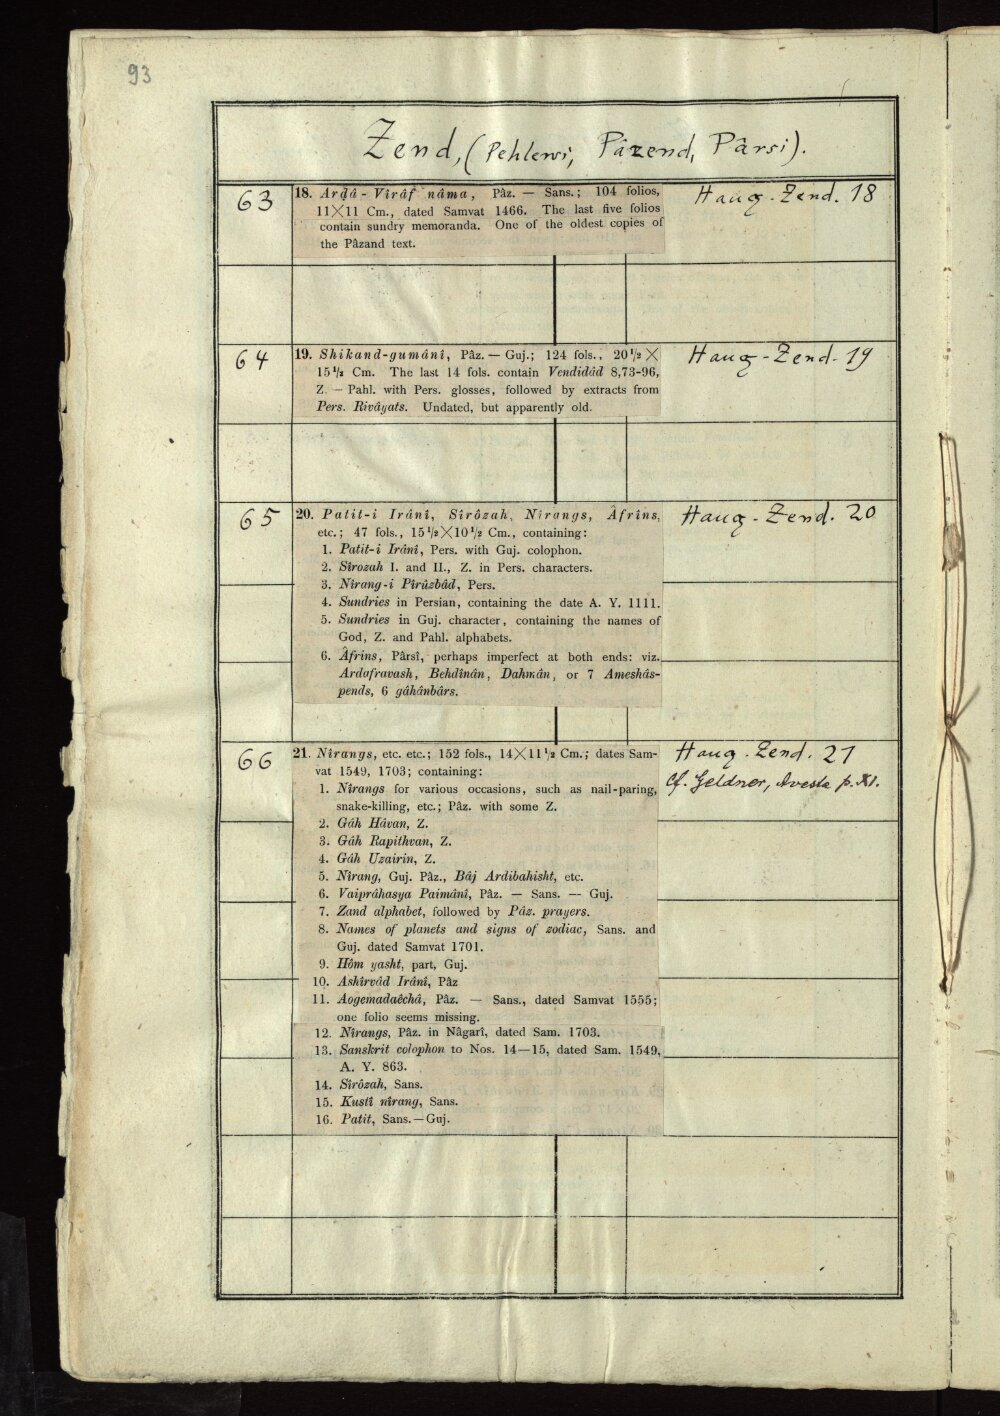 93
Zend, (Pehlewi, Pâzend, Pârsi).
63
18. Arḍâ-Vîrâf nâma, Pâz. — Sans.; 104 folios,
11×11 Cm., dated Samvat 1466. The last five folios
contain sundry memoranda. One of the oldest copies of
the Pâzand text.
Haug-Zend. 18
64
19. Shikand-gumânî, Pâz. — Guj.; 124 fols., 20½×
15½ Cm. The last 14 fols. contain Vendidâd 8,73-96,
Z. — Pahl. with Pers. glosses, followed by extracts from
Pers. Rivâyats. Undated, but apparently old.
Haug-Zend. 19
65
20. Patit-i Irânî, Sîrôzah, Nîrangs, Âfrîns,
etc.; 47 fols., 15½×10½ Cm., containing:
1. Patit-i Irânî, Pers. with Guj. colophon.
2. Sîrozah I. and II., Z. in Pers. characters.
3. Nîrang-i Pîrûzbâd, Pers.
4. Sundries in Persian, containing the date A. Y. 1111.
5. Sundries in Guj. character, containing the names of
God, Z. and Pahl. alphabets.
6. Âfrins, Pârsî, perhaps imperfect at both ends: viz.
Ardafravash, Behdînân, Dahmân, or 7 Ameshâs-
pends, 6 gâhânbârs.
Haug-Zend. 20
66
21. Nîrangs, etc. etc.; 152 fols., 14×11½ Cm.; dates Sam-
vat 1549, 1703; containing:
1. Nîrangs for various occasions, such as nail-paring,
snake-killing, etc.; Pâz. with some Z.
2. Gâh Hâvan, Z.
3. Gâh Rapithvan, Z.
4. Gâh Uzairin, Z.
5. Nîrang, Guj. Pâz., Bâj Ardibahisht, etc.
6. Vaiprâhasya Paimânî, Pâz. — Sans. — Guj.
7. Zand alphabet, followed by Pâz. prayers.
8. Names of planets and signs of zodiac, Sans. and
Guj. dated Samvat 1701.
9. Hôm yasht, part, Guj.
10. Ashîrvâd Irânî, Pâz
11. Aogemadaêchâ, Pâz. — Sans., dated Samvat 1555;
one folio seems missing.
12. Nîrangs, Pâz. in Nâgarî, dated Sam. 1703.
13. Sanskrit colophon to Nos. 14—15, dated Sam. 1549,
A. Y. 863.
14. Sîrôzah, Sans.
15. Kustî nîrang, Sans.
16. Patit, Sans. — Guj.
Haug-Zend. 21
Cf. Geldner, Avesta p. XI.